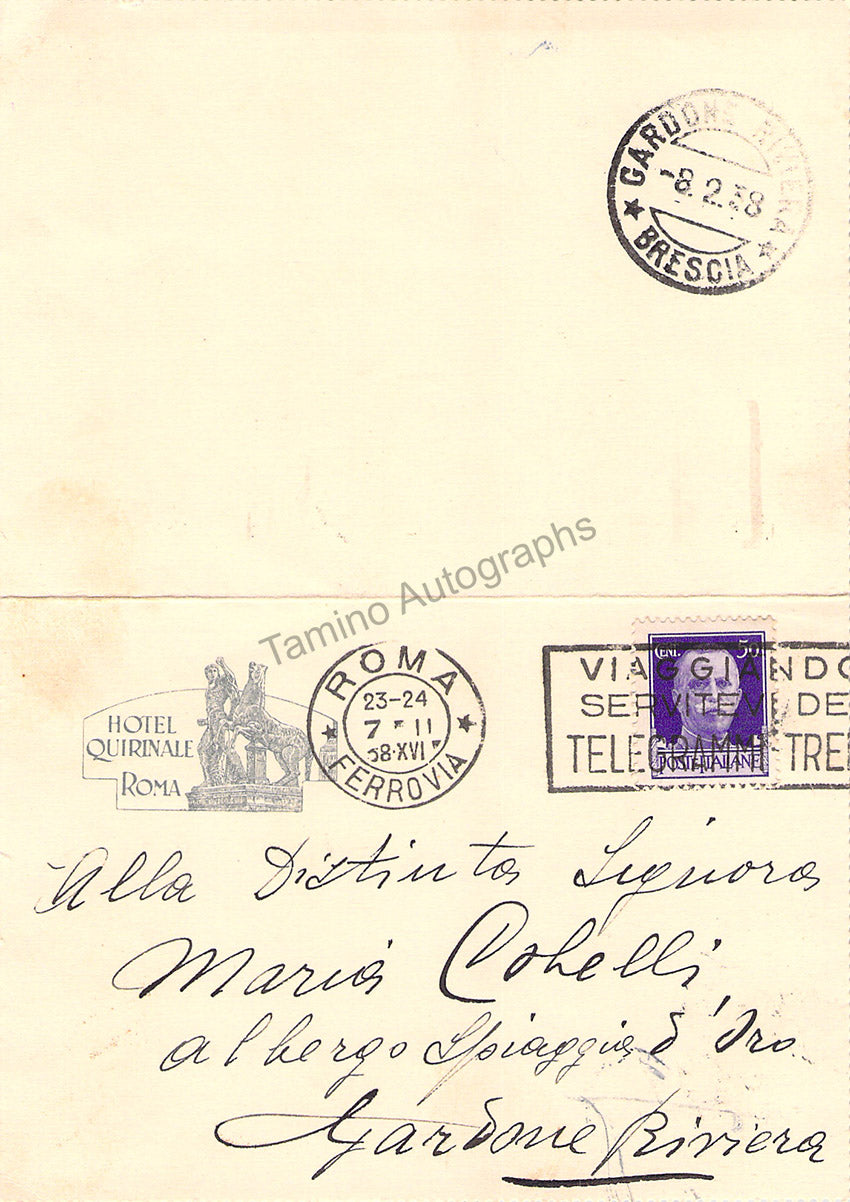 GARDONE RIVIERA
-8.2.38
BRESCIA
Tamino Autographs
HOTEL
QUIRINALE
ROMA
ROMA
23-24
7 - II
38·XVI
FERROVIA
CENT. 50
POSTE ITALIANE
VIAGGIANDO
SERVITEVI DE
TELEGRAMMI-TRE
Alla Distinta Signora
Maria Cobelli
albergo Spiaggia d'Oro
Gardone Riviera